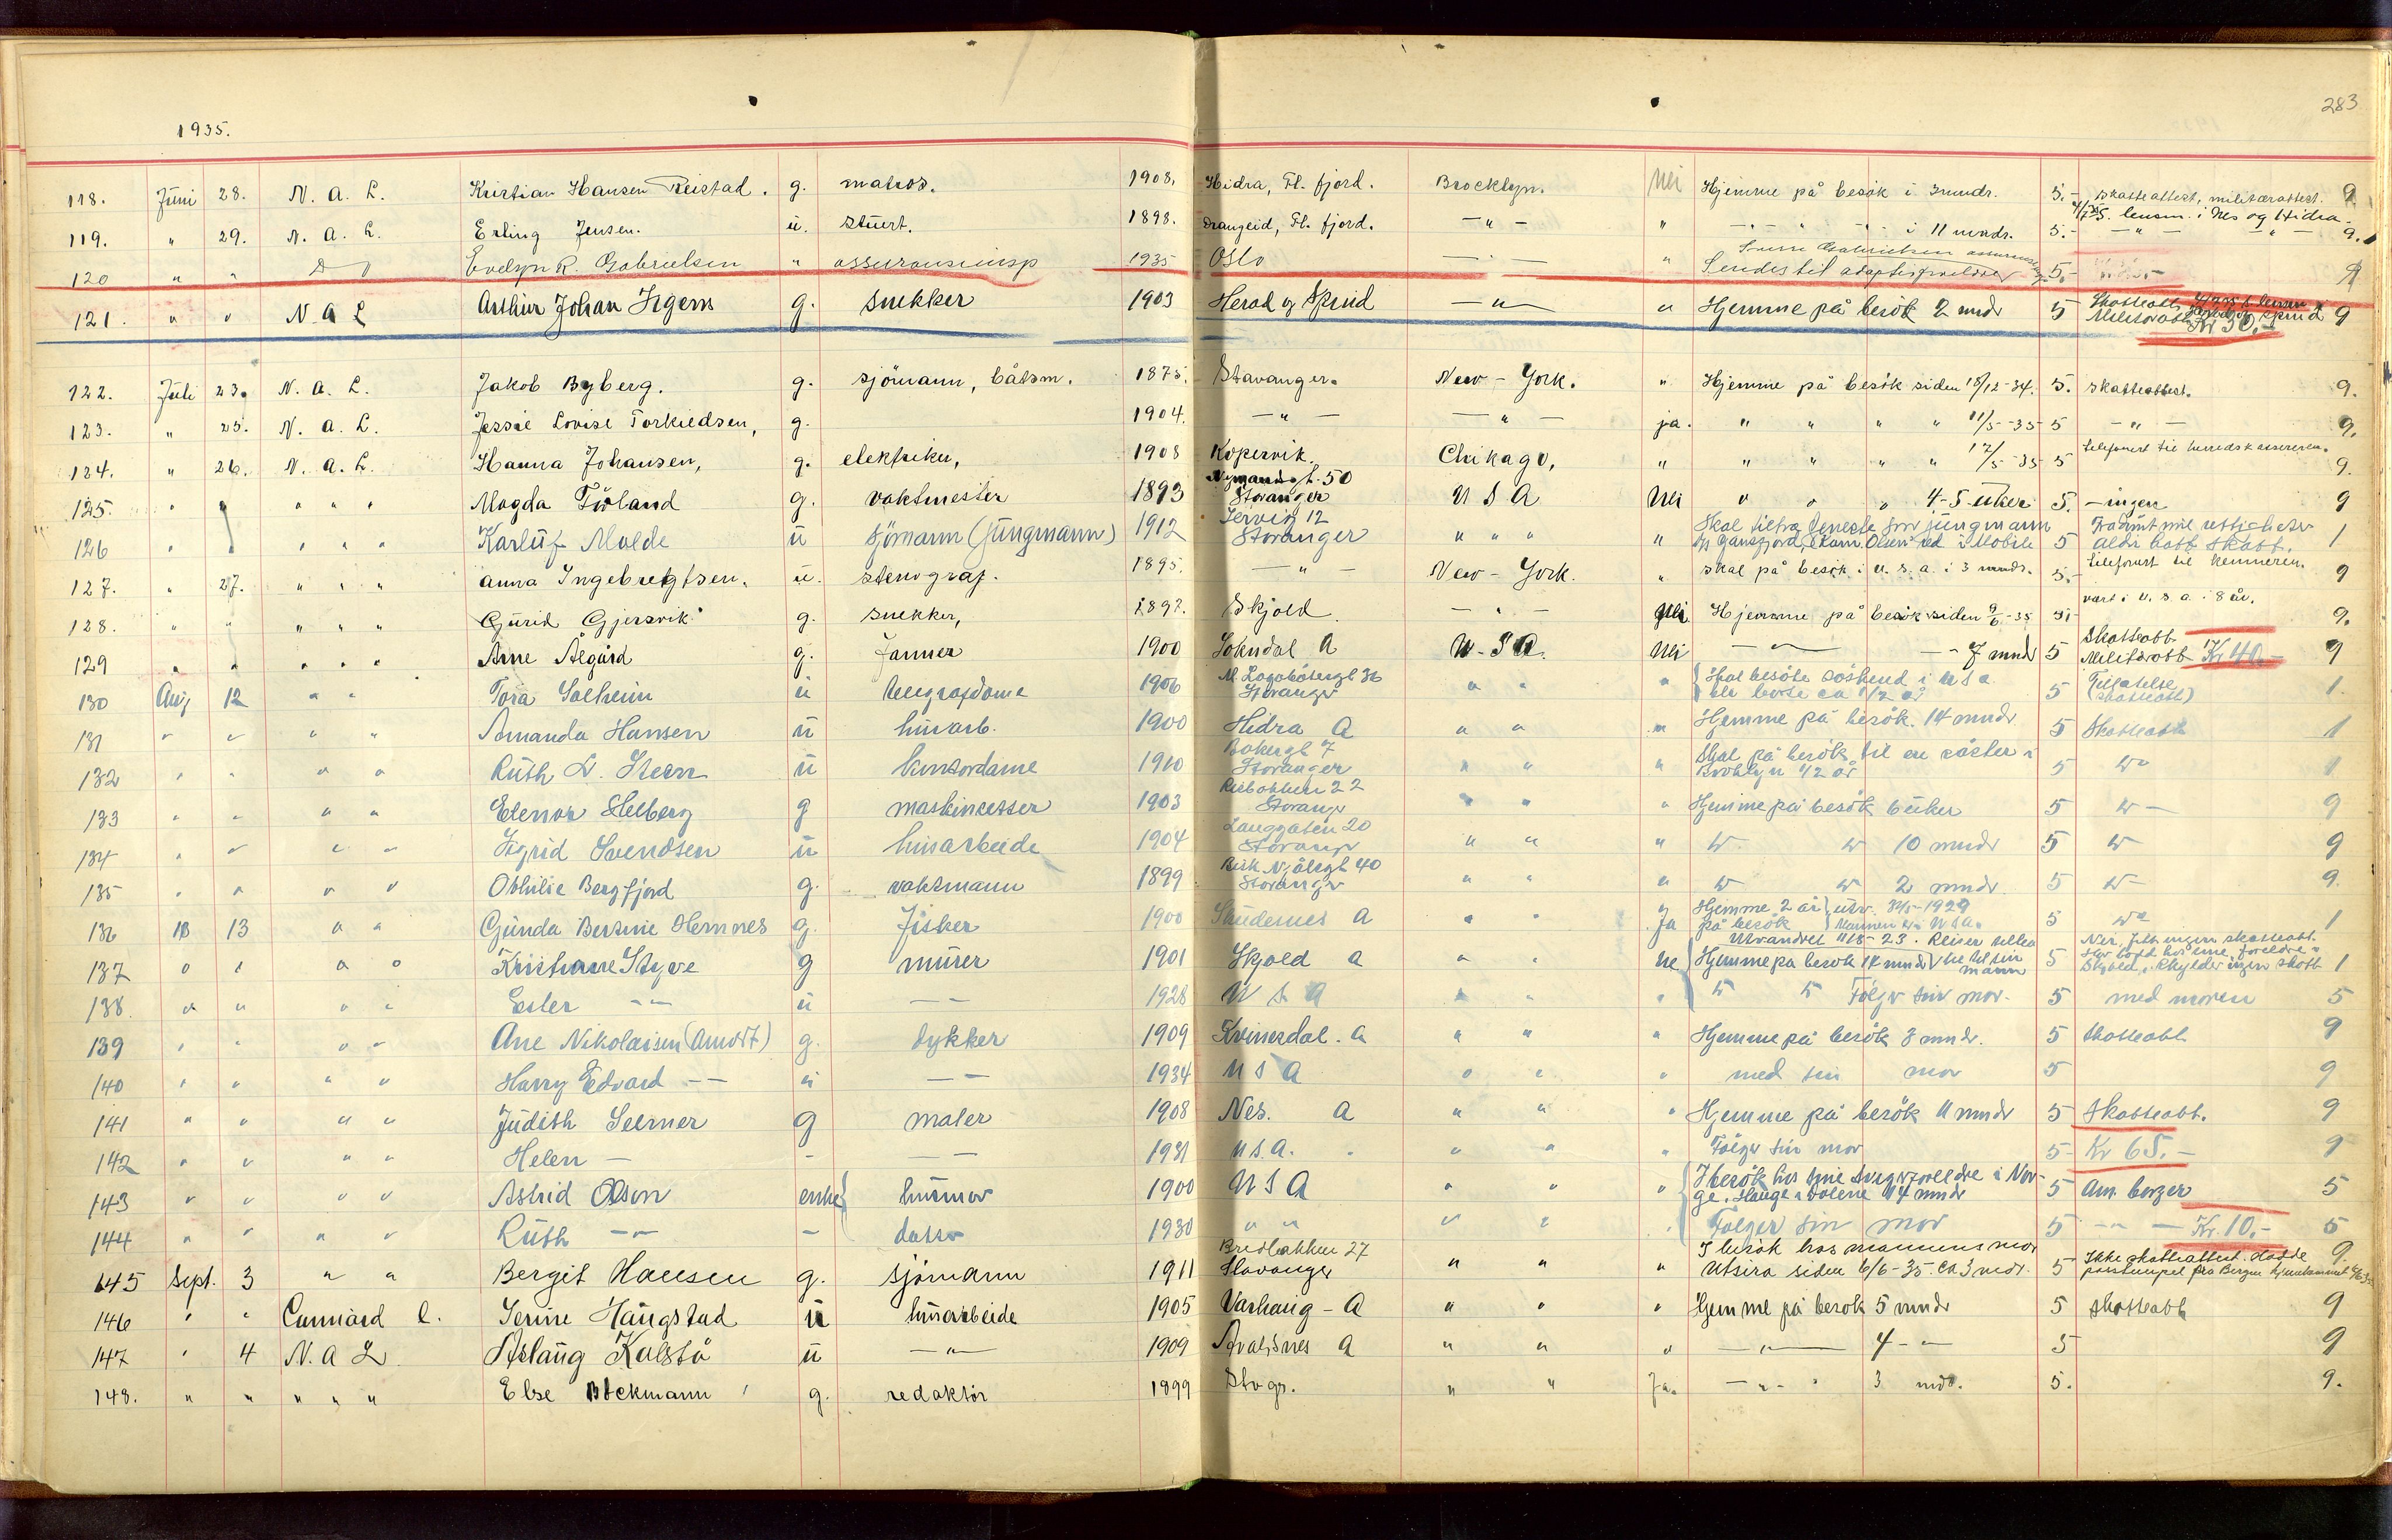 283
1935.
118. Juni 28. N. A. L. Kristian Hansen Reistad. g. matros. 1908. Hidra, Fl. fjord. Brocklyn. Nei Hjemme på besök i 3 mndr. 5.- skatteattest, militærattest. 9.
119. " 29. N. A. L. Erling Jensen. u. stuert. 1898. Drangeid, Fl. fjord. -"- " i 11 mndr. 5.- -"- 9.
120 " " Evelyn R. Gabrielsen " assuranseinsp 1935 Oslo " Sendes til adoptivforeldre 5.-
121. " " N A L Arthur Johan Tegens g. snekker 1903 Herad og Spind -"- " Hjemme på besök 2 mndr 5 Skatteatt Militæratt Kr 30.- 9
122. Juli 23. N. A. L. Jakob Byberg. g. sjömann, båtsm. 1875. Stavanger. New-York. " Hjemme på besök siden 18/12-34. 5. skatteattest. 9.
123. " 25. N. A. L. Jessie Lovise Torkildsen, g. 1904. -"- -"- ja. " " " " 11/5-35 5 -"- 9.
124. " 26. N. A. L. Hanna Johansen, g. elektriker, 1908 Kopervik. Chikago, " " " " " 12/5-35 5 telefonert til herredskassereren. 9.
125. " " " " " Magda Törland g. vaktmester 1893 Nymandsgt. 50 Stavanger U S A Nei " " " 4-5 uker 5. - ingen 9
126 " " " " " Karluf Molde u sjömann (jungmann) 1912 Jervig 12 Stavanger " " " " Skal tiltre tjeneste som jungmann 5 aldri batt skatt. 1
127. " 27. " " " Anna Ingebregtsen. u. stenograf. 1895. -"- New-York. " skal på besök i U. S. A. i 3 mndr. 5.- telefonert til kemneren. 9
128. " " " " " Gurid Gjersvik g. snekker, 1892. Skjold -"- Nei Hjemme på besök siden 9/6-35 5.- vært i U. S. A. i 8 år. 9.
129 " " " " " Arne Ålgård g. farmer 1900 Sokndal A U. S A. Nei -"- 7 mndr 5 Skatteatt Militæratt Kr 40.- 9
130 Aug 12 " " Tora Solheim u telegrafdame 1906 Stavanger " " " Skal besöke söskend i U S A 5 (skatteatt) 1.
131 " " " " Amanda Hansen u husarb. 1900 Hidra A " " " Hjemme på besök. 14 mndr 5 Skatteatt 1
132 " " " " Ruth N. Steen u kontordame 1910 Bakergt 7 Stavanger " " " Skal på besök til en söster i Brooklyn 1/2 år 5 1
133 " " " " Elenor Helberg g maskinsetter 1903 22 Stavanger " " " Hjemme på besök 6 uker 5 9
134 " " " " Sigrid Svendsen u husarbeide 1904 Langgaten 20 Stavanger " " " 10 mndr 5 9
135 " " " " Othilie Bergfjord g. vaktmann 1899 Bisk. Njålsgt 40 Stavanger " " " 2 mndr. 5 9.
136 13 " " Gunda Bersine Hemnes g. fisker 1900 Skudenes A " " Ja Hjemme 2 år på besök 5 1
137 " " " " Kristiane Styve g murer 1901 Skjold A " " ne Utvandret 11/8-23. Reiser tilbake til sin mann Hjemme på besök 14 mndr 5 1
138. " " " " Ester -"- u -- 1928 U S A " " " Fölger sin mor. 5 med moren 5
139 " " " " Ane Nikolaisen (Arndt) g. dykker 1909 Kvinesdal. A " " " Hjemme på besök 3 mndr. 5 Skatteatt 9
140 " " " " Harry Edvard -- u -- 1934 U S A " " " med sin mor 5 9
141 " " " " Judith Seerner g maler 1908 Nes. A " " " Hjemme på besök 11 mndr 5 Skatteatt. 9
142 " " " " Helen - - -- 1931 U.S.A. " " " Fölger sin mor 5- Kr 65.- 9
143 " " " " Astrid Olson enke husmor 1900 U S A " " " I besök hos sine svigerforeldre i Norge. Hauge i Dalene 14 mndr 5 Am. borger 5
144 " " " " Ruth -"- - datter 1930 " " " " Fölger sin mor 5 Kr. 10.- 5
145 Sept. 3 " " Bergit Hansen g. sjömann 1911 Bredbakken 27 Stavanger " " " I besök hos mannens mor Utsira siden 6/6-35. ca 3 mdr. 5 Ikke skatteattest. Hadde passtempel fra Bergen 9.
146 " " Cunnard L. Serine Haugstad u husarbeide 1905 Varhaug - A " " " Hjemme på besök 5 mndr 5 skatteatt 9
147 " 4 N. A L. Aslaug Kalstö u -"- 1909 Avaldsnes A " " " -"- 4 -"- 5 9
148. " " " " " Else Böckmann g. redaktör 1899 Stvgr. " " Ja. -"- 3 mdr. 5. 9.